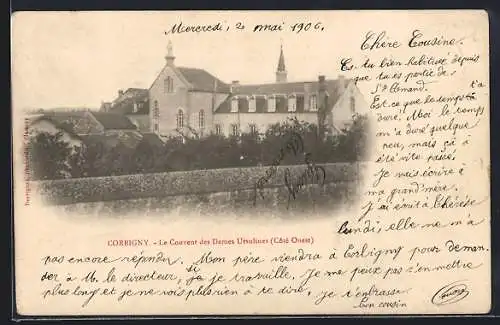 Mercredi, 2 mai 1906.
Chère Cousine.
Es-tu bien habituée depuis
que tu es partie de
St Amand.
Est-ce que le temps t'a
duré. Moi le temps
m'a duré quelque
peu, mais ça a
été vite passé.
Je vais écrire à
ma grand'mère.
J'ai écrit à Thérèse
Lundi, elle ne m'a
CORBIGNY. - Le Couvent des Dames Ursulines (Côté Ouest)
pas encore répondu. Mon père viendra à Corbigny pour deman-
der à M. le directeur, si je travaille. Je me peux pas t'en mettre
plus long et je ne vois plus rien à te dire, je t'embrasse.
Ton cousin